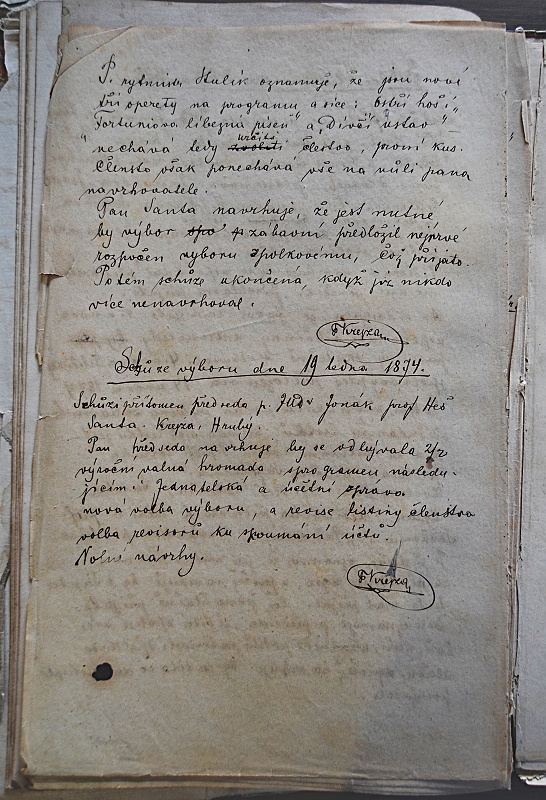 P. rytmistr Hulík oznamuje, že jsou nové
tři operety na programu a sice: „ostří hoši"
„Fortuniova libezná píseň" a „Dívčí ústav"
nechává tedy zvoliti určiti členstvo, první kus.
Členstvo však ponechává vše na vůli pana
navrhovatele.
Pan Santa navrhuje, že jest nutné
by výbor spo zábavní předložil nejprvé
rozpočen vyboru spolkovému, Což přijato.
Potém schůze ukončená, když již nikdo
více nenavrhoval.
F Krejza
Schůze výboru dne 19 ledna 1894.
Schůzi přítomen předseda p. JUDr Jonák prof Heš
Santa. Krejza, Hrubý.
Pan předseda navrhuje by se odbývala 2/2
výroční valná hromada s programem následu-
jícím: Jednatelská a účetní zpráva
nová volba výboru, a revise listiny členstva
volba revisorů ku zkoumání účtů.
Volné návrhy.
F Krejza